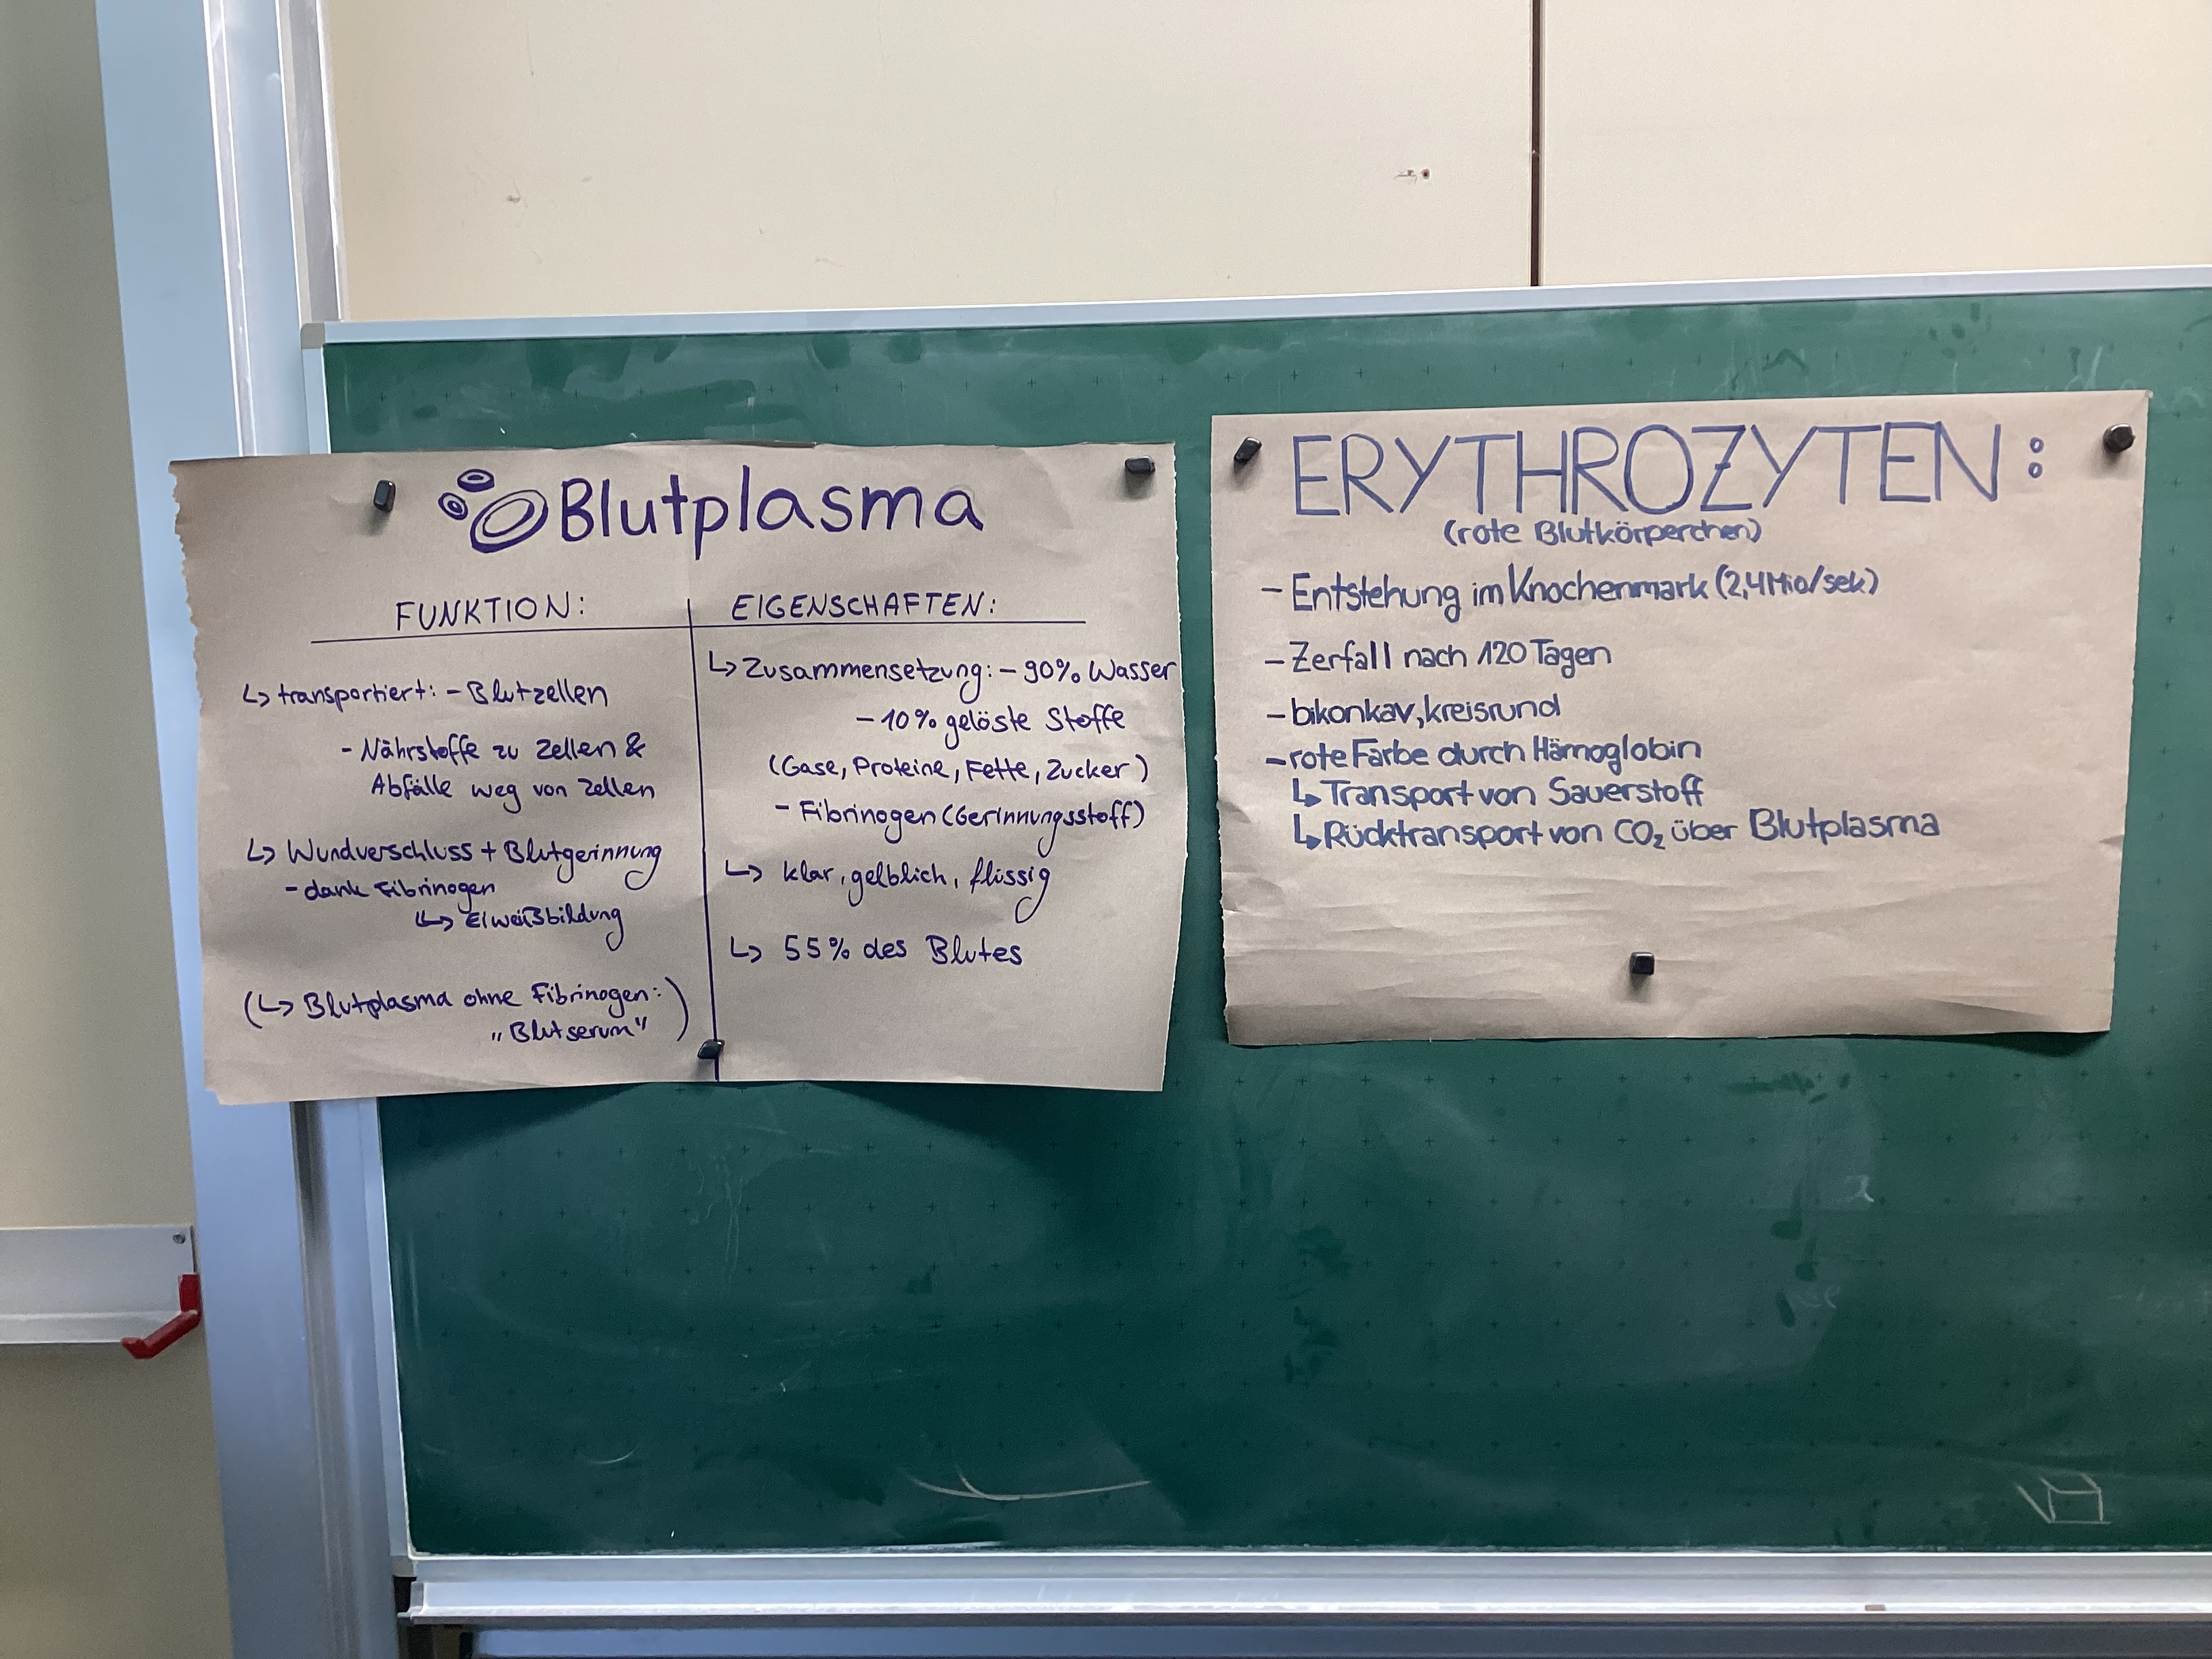 Blutplasma
FUNKTION:
↳ transportiert: - Blutzellen
- Nährstoffe zu Zellen &
Abfälle weg von Zellen
↳ Wundverschluss + Blutgerinnung
- dank Fibrinogen
↳ Eiweißbildung
(↳ Blutplasma ohne Fibrinogen:)
„Blutserum"
EIGENSCHAFTEN:
↳ Zusammensetzung: - 90% Wasser
- 10% gelöste Stoffe
(Gase, Proteine, Fette, Zucker)
- Fibrinogen (Gerinnungsstoff)
↳ klar, gelblich, flüssig
↳ 55% des Blutes
ERYTHROZYTEN:
(rote Blutkörperchen)
- Entstehung im Knochenmark (2,4 Mio/sek)
- Zerfall nach 120 Tagen
- bikonkav, kreisrund
- rote Farbe durch Hämoglobin
↳ Transport von Sauerstoff
↳ Rücktransport von CO₂ über Blutplasma